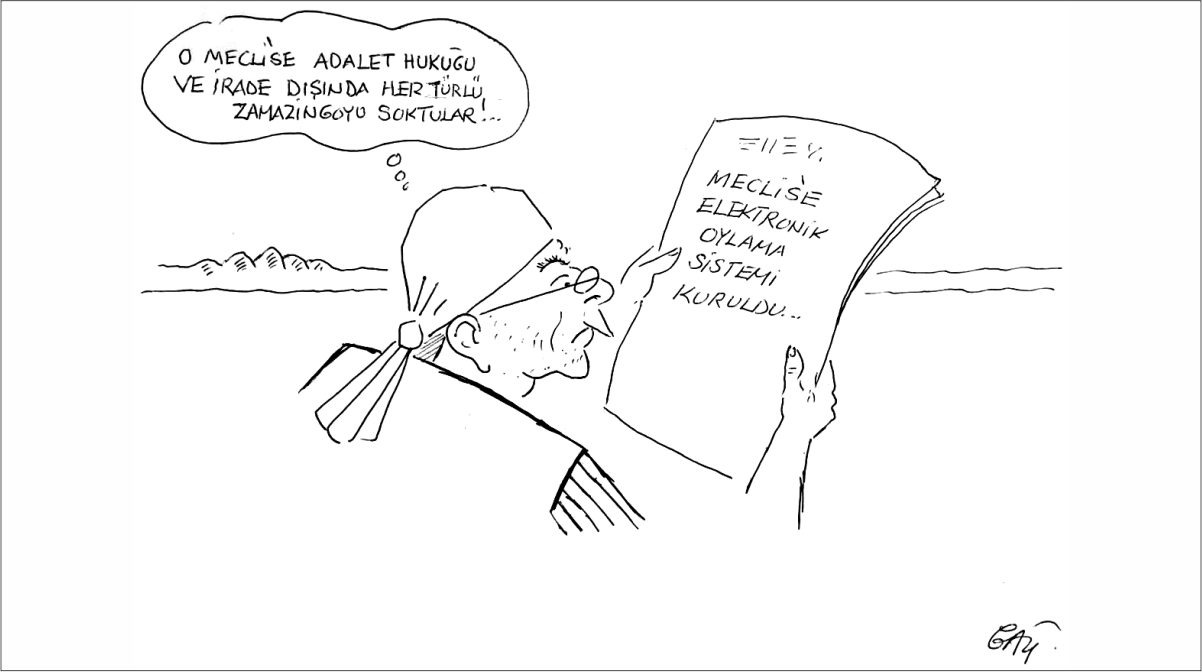 O MECLİSE ADALET HUKUĞU
VE İRADE DIŞINDA HER TÜRLÜ
ZAMAZİNGOYU SOKTULAR!...
MECLİSE
ELEKTRONİK
OYLAMA
SİSTEMİ
KURULDU...